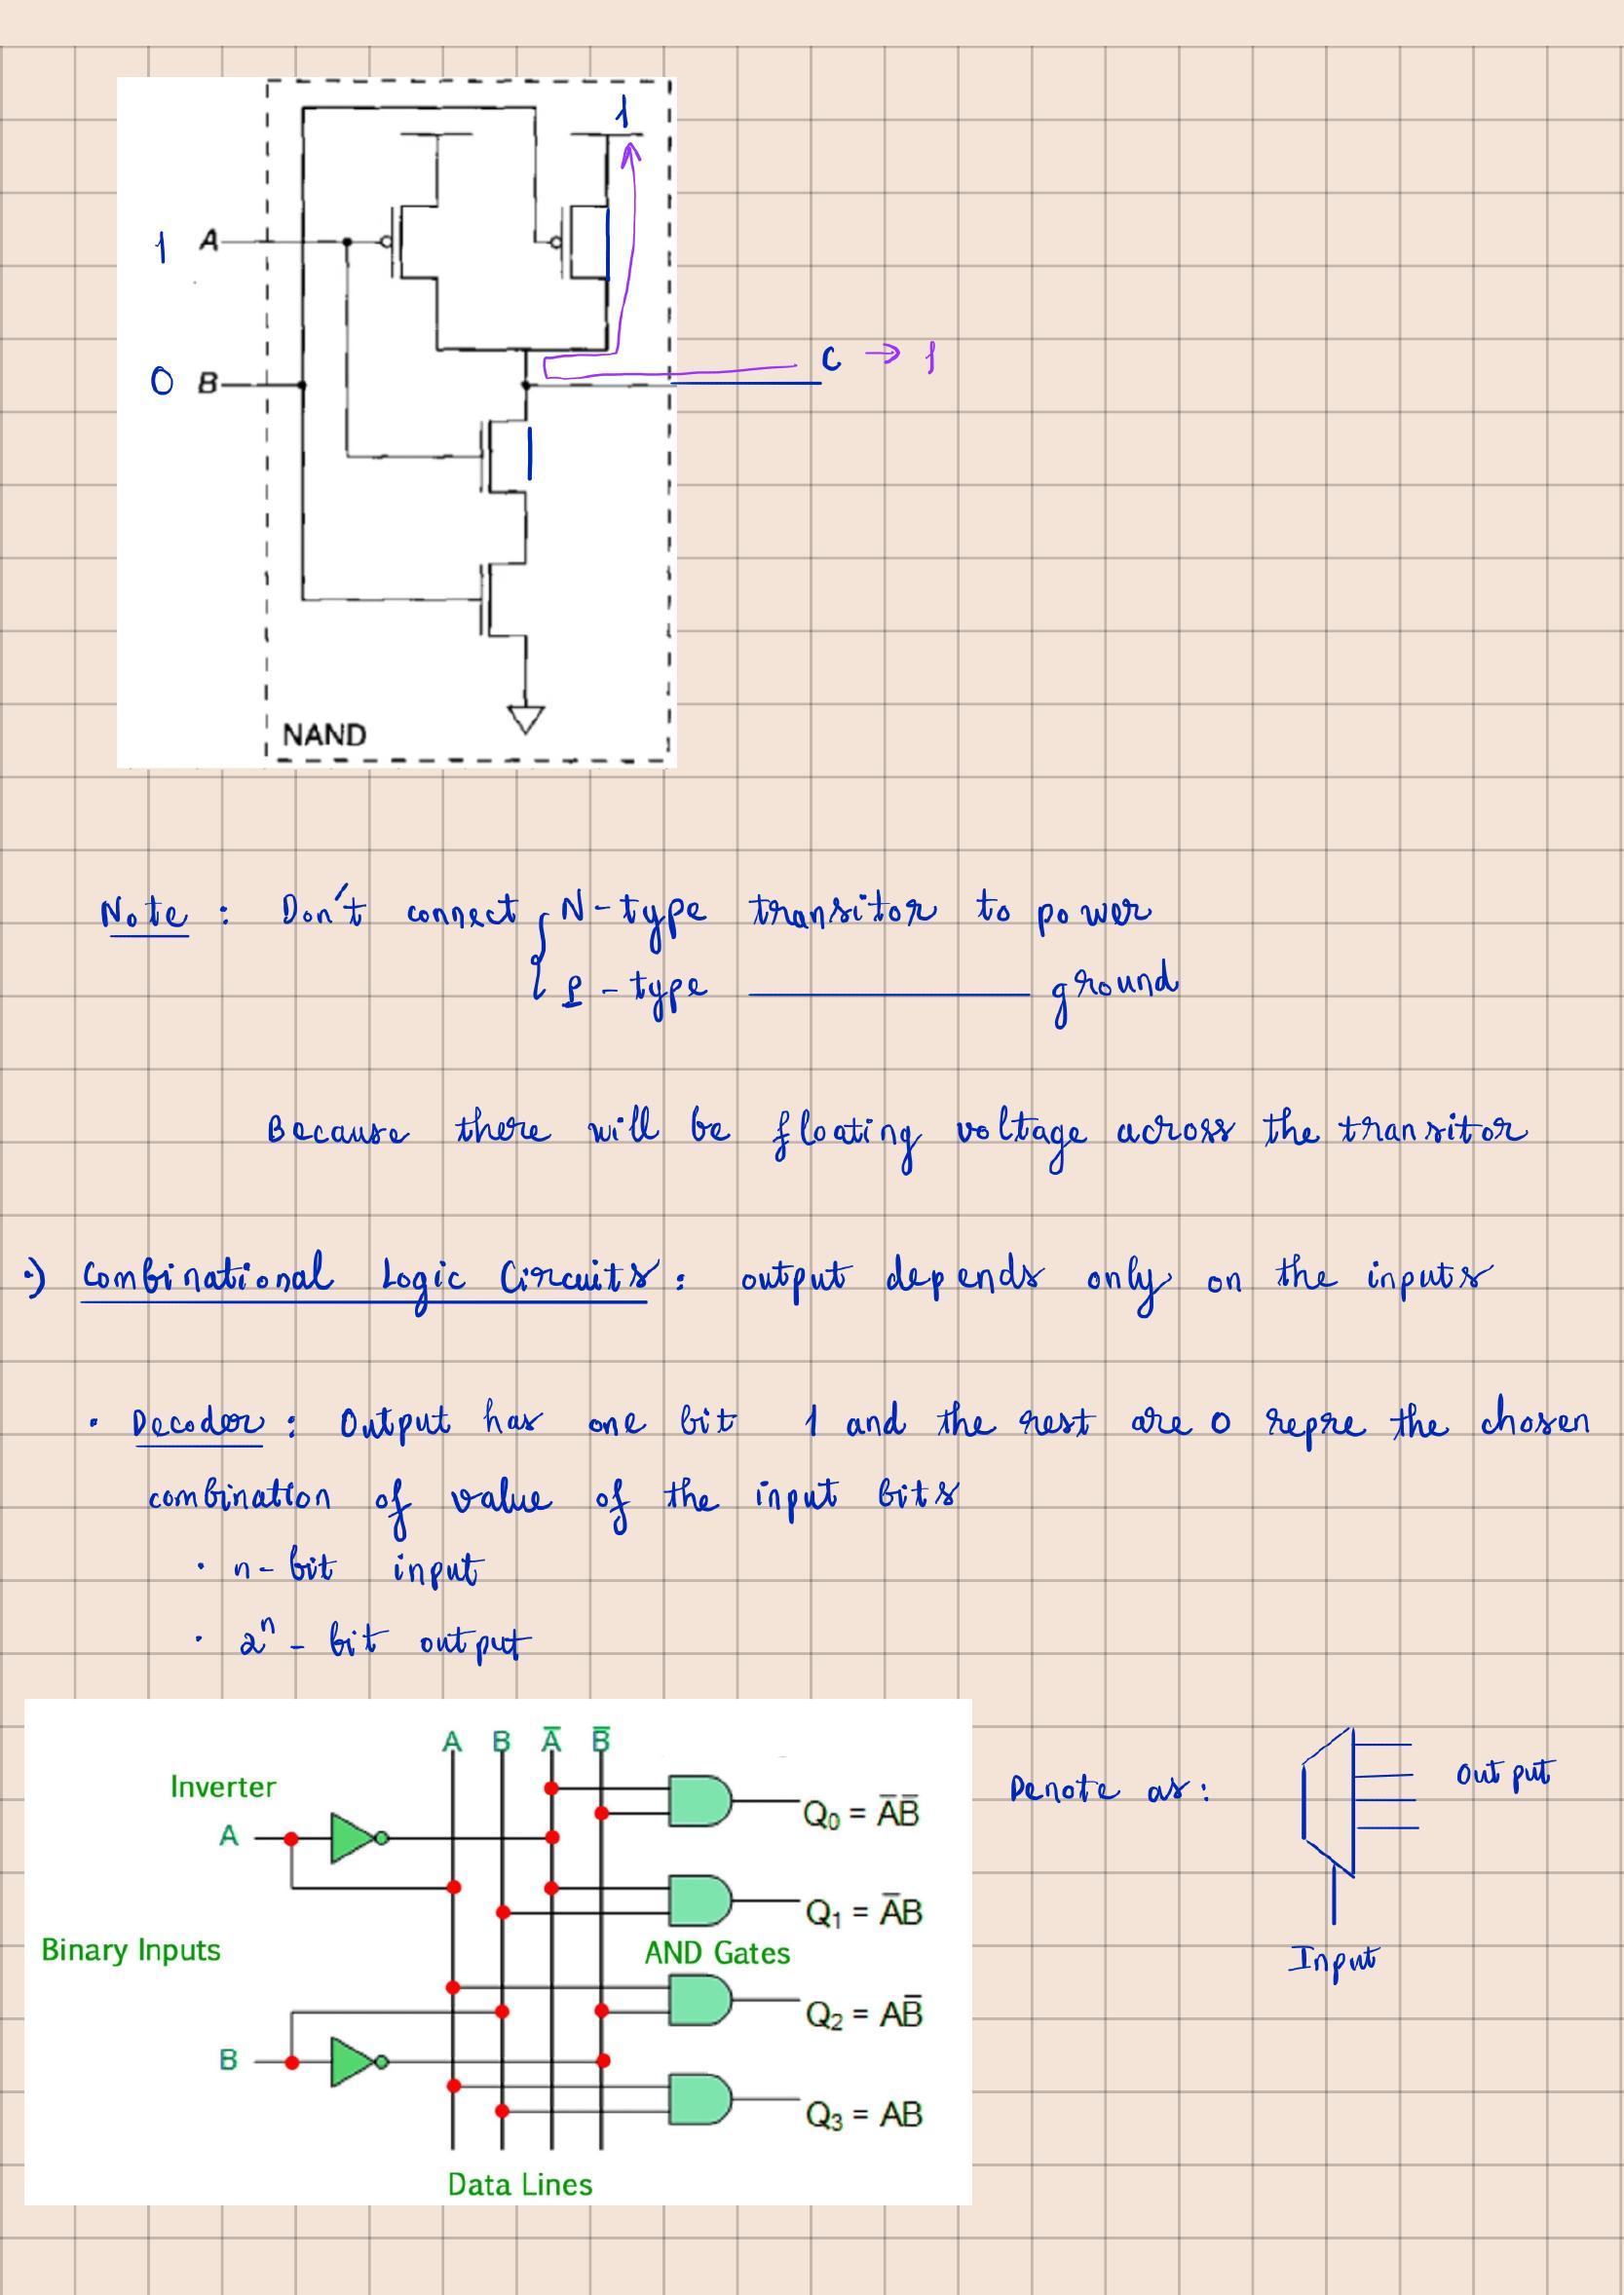 1
1 A
C → 1
0 B
NAND
Note : Don't connect { N-type transitor to power
P-type ———— ground
Because there will be floating voltage across the transitor
·) Combinational Logic Circuits : output depends only on the inputs
· Decoder : Output has one bit 1 and the rest are 0 repre the chosen
combination of value of the input bits
· n-bit input
· 2ⁿ - bit output
A B A̅ B̅
Inverter
A
Q₀ = A̅B̅
Q₁ = A̅B
Binary Inputs
AND Gates
Q₂ = AB̅
B
Q₃ = AB
Data Lines
Denote as :
Output
Input